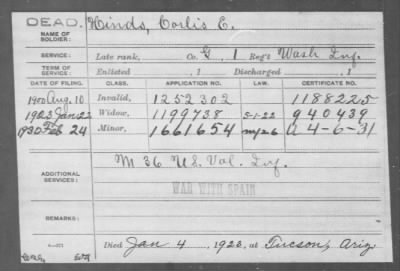 DEAD. Hinds, Corlis E.
NAME OF SOLDIER:
SERVICE: Late rank, Co. G, 1 Reg't Wash Inf.
TERM OF SERVICE: Enlisted , 1 Discharged , 1
DATE OF FILING. CLASS. APPLICATION NO. LAW. CERTIFICATE NO.
1900 Aug. 10 Invalid, 1252302 1188225
1923 Jan 22 Widow, 1199738 5-1-22 940439
1930 Feb 24 Minor, 1661654 my26 A-4-6-31
ADDITIONAL SERVICES: M 36 U.S. Vol. Inf.
WAR WITH SPAIN
REMARKS:
Died Jan 4, 1923, at Tucson, Ariz